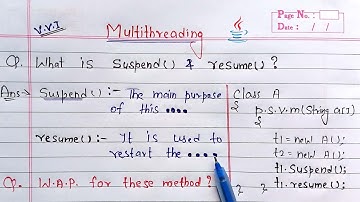 V.V.I
Multithreading
Page No. :
Date : / /
Q. What is Suspend() & resume()?
Ans→ Suspend() :- The main purpose
of this ....
resume() :- It is used to
restart the ....
Q. W.A.P. for these method?
Class A
{
p.s.v.m(String a[])
{
t1 = new A();
t2 = new A();
t1.Suspend();
t1.resume();
} }